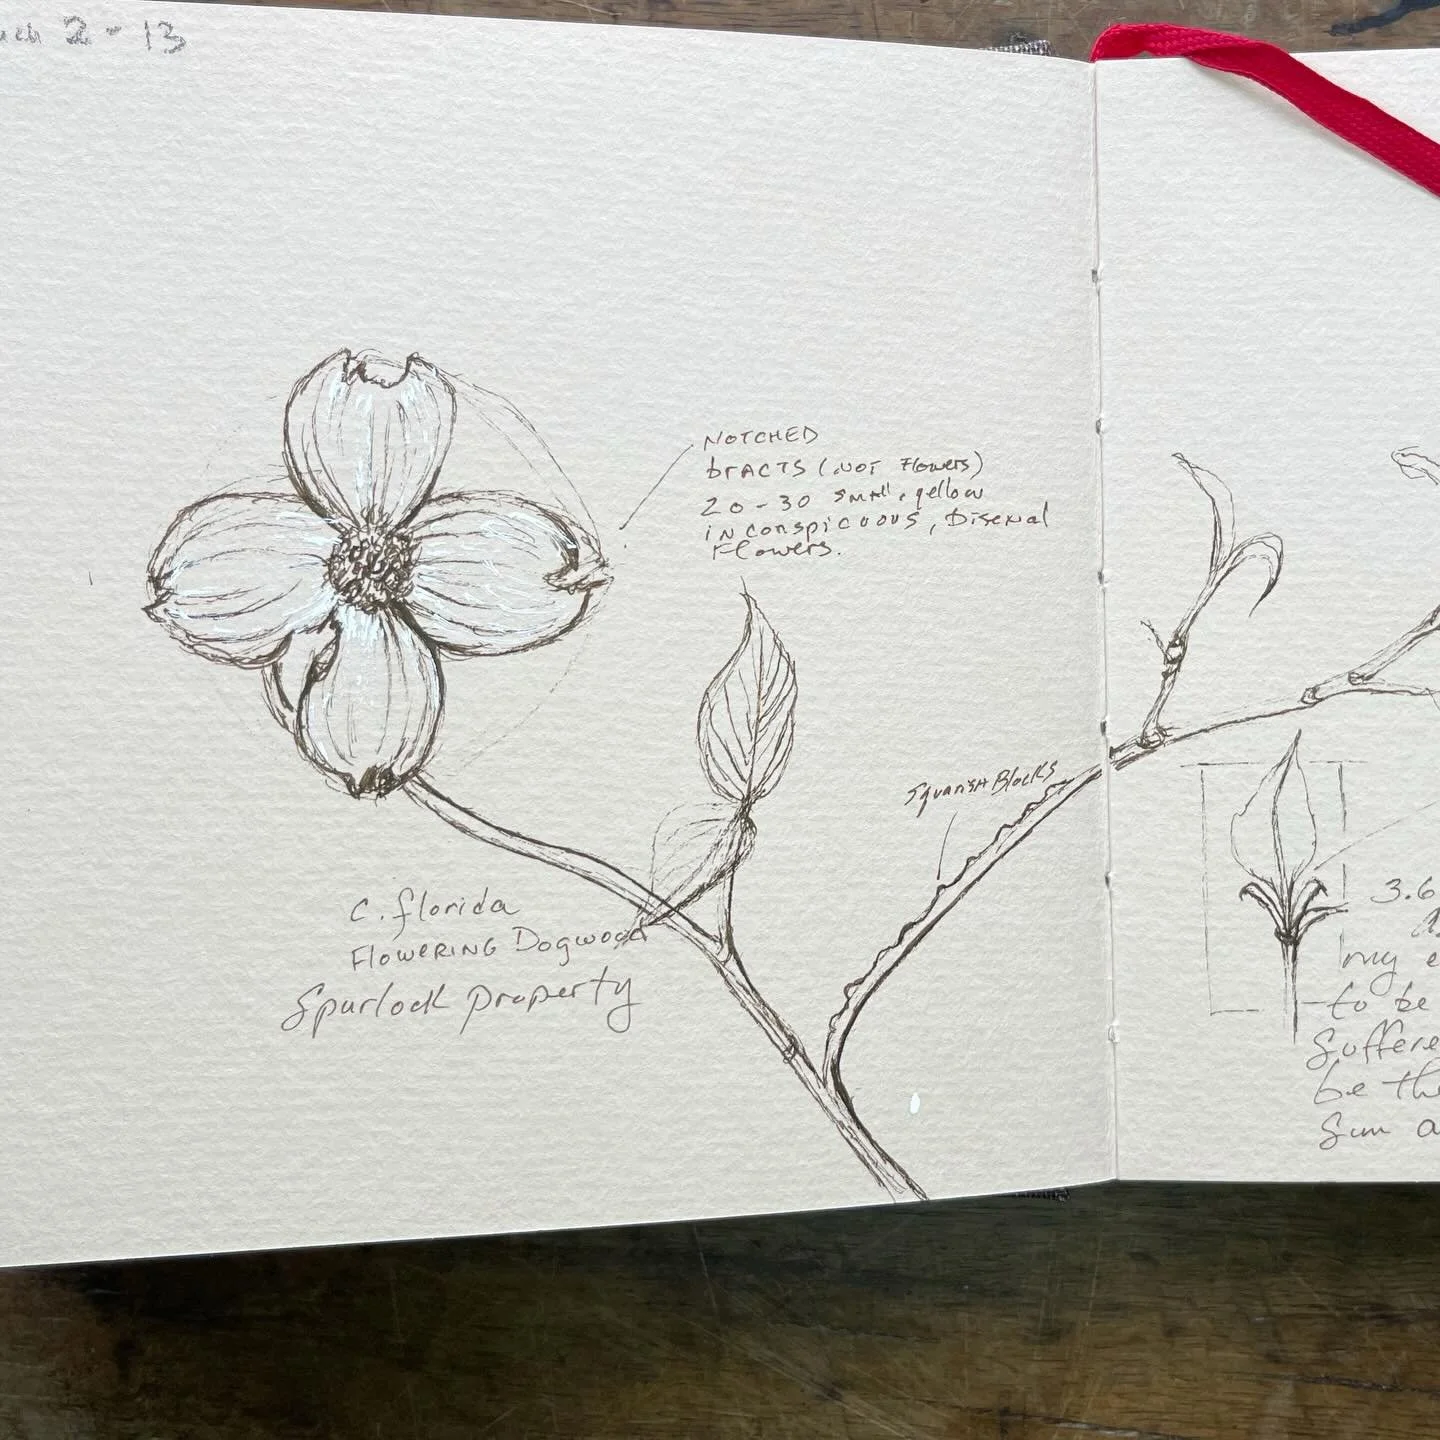 2-13
NOTCHED
brACTS (NOT Flowers)
20-30 small, yellow
inconspicuous, Bisexual
Flowers.
Squarish Blocks
C. florida
Flowering Dogwood
Spurlock property
3.6
my
to be
Suffere
be the
Sun a